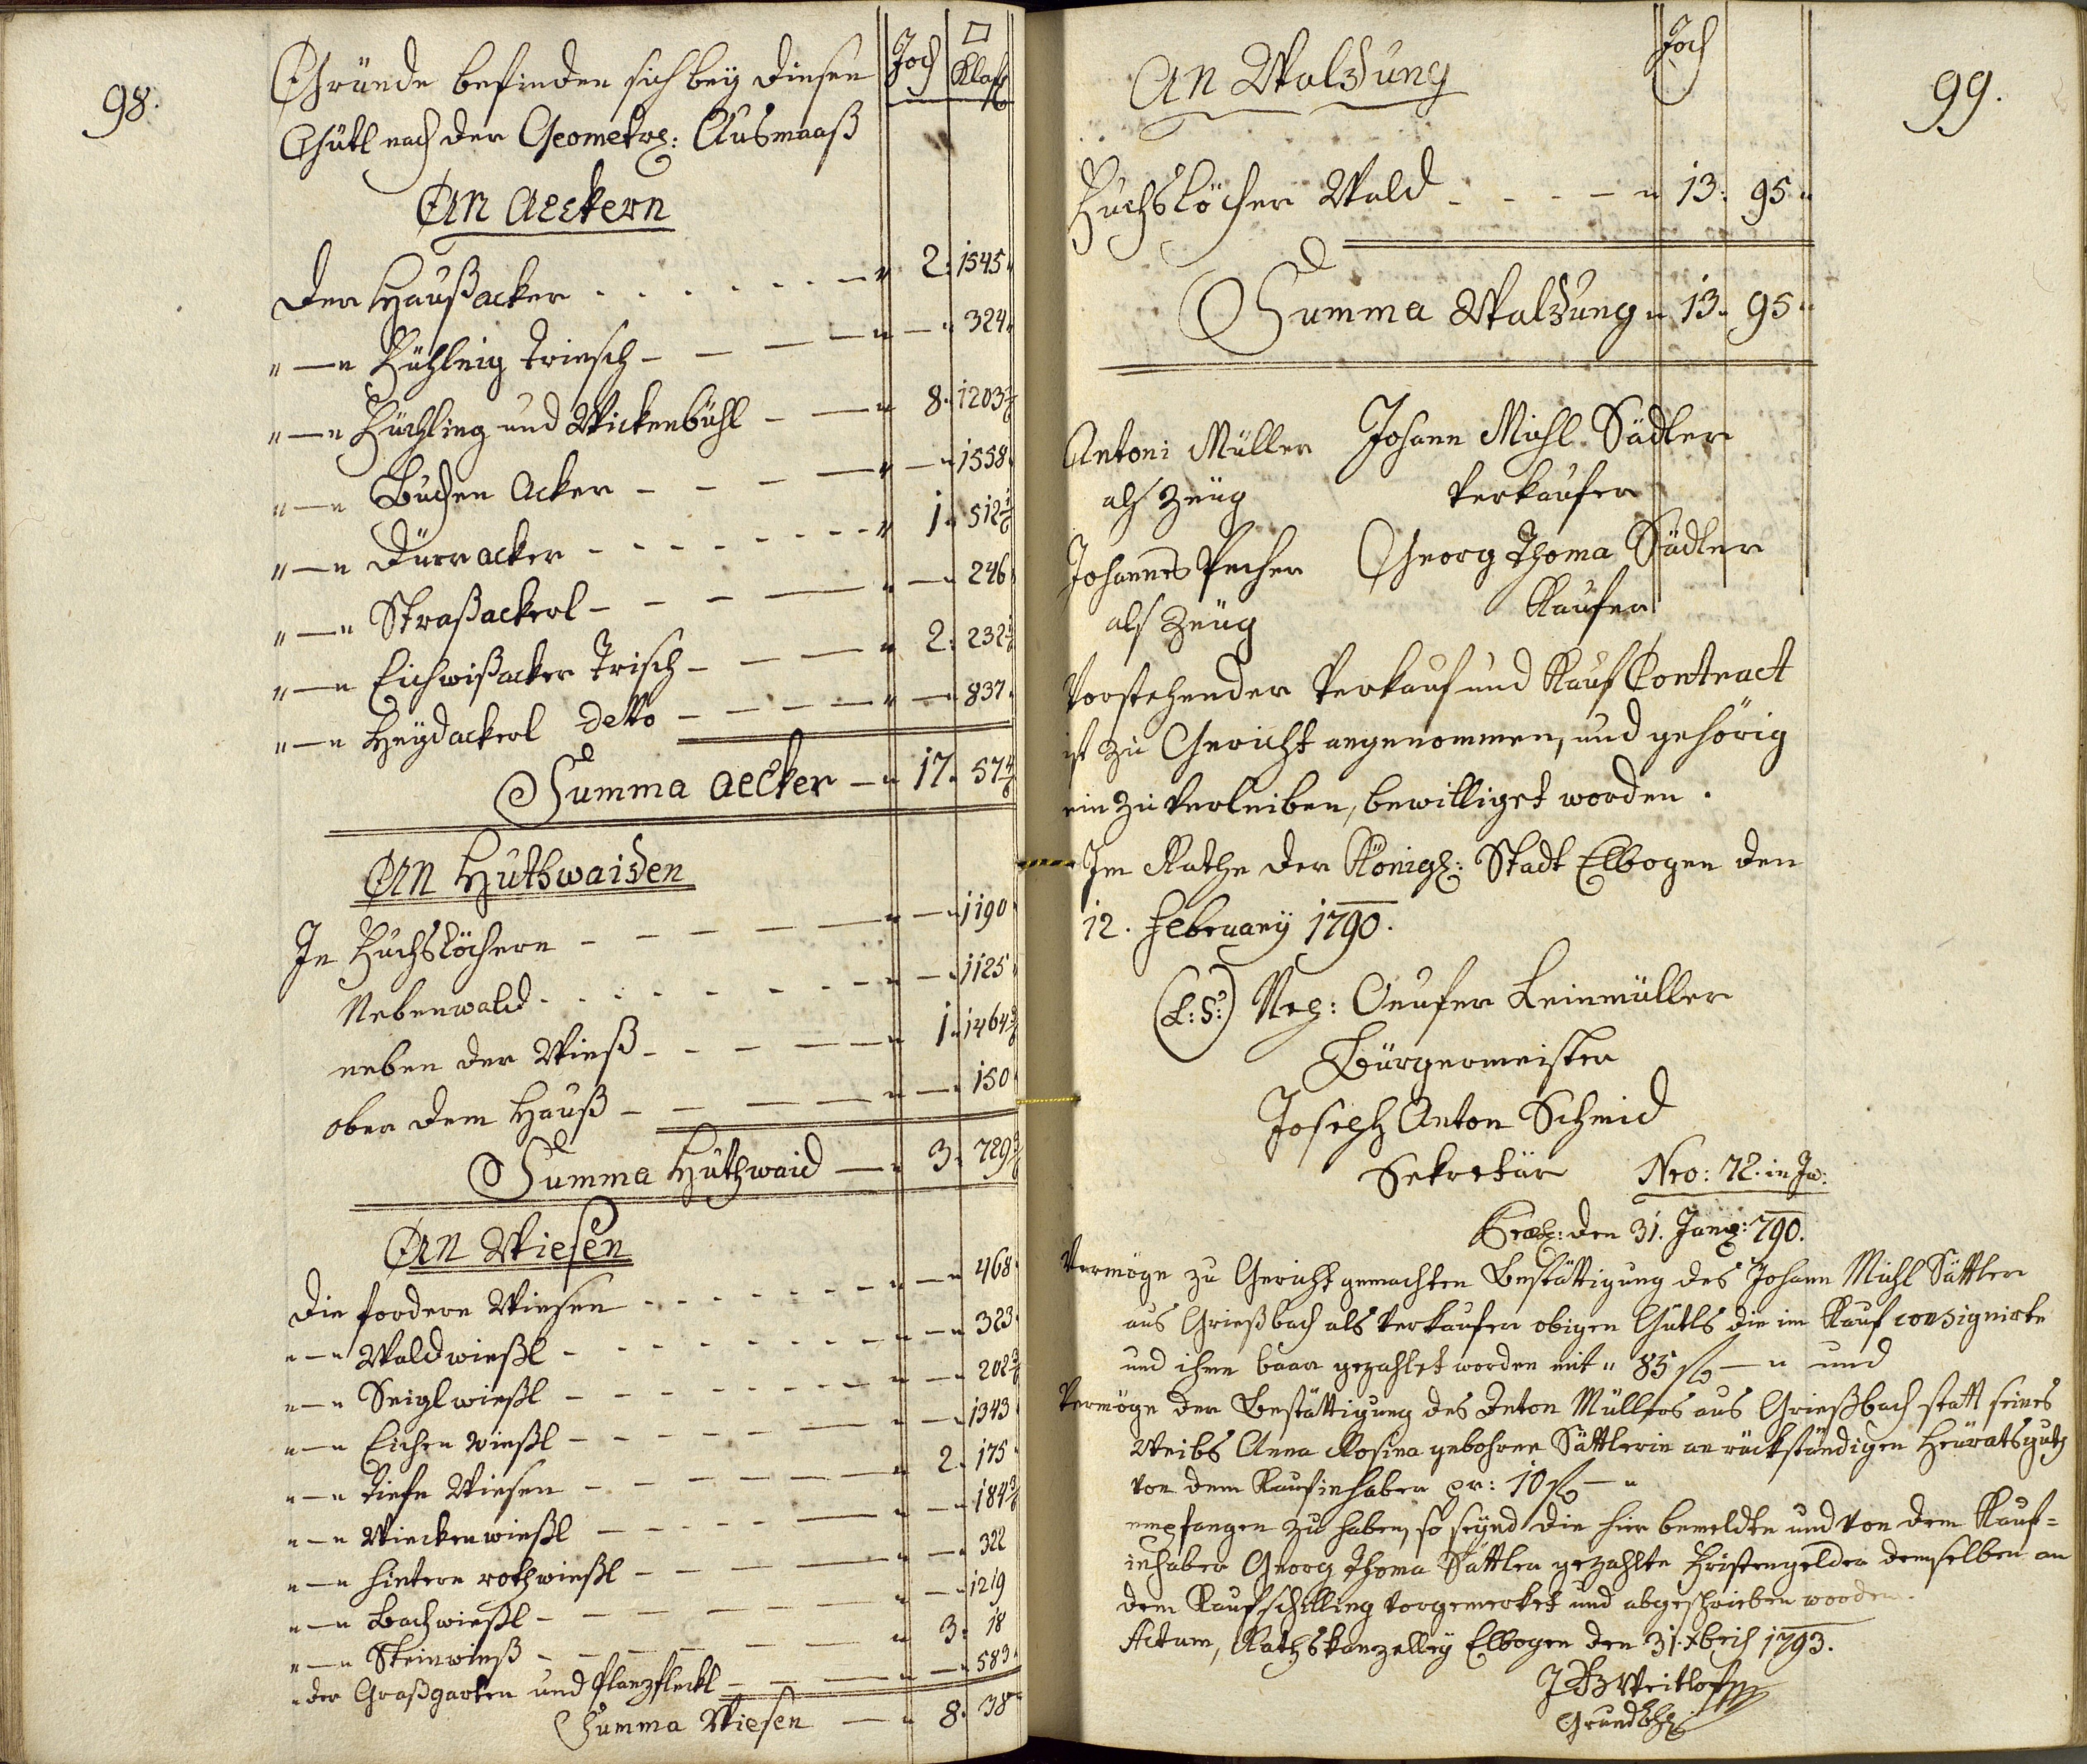 98.
Gründe befinden sich bey diesen Joch □ Klaft
Gütl nach der Geometr: Ausmaaß
An Aeckern
Der Haußacker - - - " 2. 1545.
"—" Bühlnig Triesch - - - " — " 324.
"—" Büchling und Wickenbühl - — " 8. 1203 3/6
"—" Buchen Acker - - - — " — " 1558.
"—" Dürracker - - - " 1. 512 1/6
"—" Straßackerl - - - — " — 246.
"—" Eichwißacker Trisch - — — " 2. 232 1/6
"—" Heydackerl detto - - - " — 837.
Summa Aecker — " 17. 57 4/6
An Huthwaiden
In Fuchslöchern - - - " — " 1190.
Nebenwald - - - " — " 1125.
neben der Wieß - - - " 1. 1464 3/6
ober dem Hauß - - - " — " 150.
Summa Huthwaid — " 3. 729 3/6
An Wiesen
Die fordern Wiesen - - - " — " 468.
"—" Waldwießl - - - " — " 323.
"—" Seiglwießl - - - " — " 202 3/6
"—" Eichen wießl - - - " — " 1343.
"—" Tiefe Wiesen - - - " 2. 175.
"—" Wieckenwießl - - - " — " 184 3/6
"—" hintere rothwießl - - - " — " 322
"—" Bachwießl - - - " — " 1219
"—" Steinwieß - - - " 3. 18
" der Graßgarten und Planzfleckl - - " — " 583.
Summa Wiesen — " 8. 38
99.
An Waldung Joch
Fuchslöcher Wald - - - — " 13. 95 "
Summa Waldung " 13. 95 "
Antoni Müller Johann Michl Sädler
als Zeüg Verkaufer
Johannes Pecher Georg Thoma Sädler
als Zeüg Kaufer
Vorstehender Verkauf und Kauf Contract
ist zu Gericht angenommen, und gehörig
einzuverleiben, bewilliget worden.
Im Rathe der Königl: Stadt Elbogen den
12. February 1790.
(L:S:) Nep: Onufer Leinmüller
Bürgermeister
Joseph Anton Schmid
Sekretär Nro: 72. in Ju:
den 31. Jany: 790.
Vermöge zu Gericht gemachten Bestättigung des Johann Michl Sättler
aus Grießbach als Verkaufer obigen Gütls die im Kauf consignirte
und ihm baar gezahlet worden mit " 85 f — " und
Vermöge der Bestättigung des Anton Müllers aus Grießbach statt seines
Weibs Anna Rosina gebohrne Sättlerin an rückständigen Heüratsguth
von dem Kaufinhaber pr: 10 f — "
empfangen zu haben, so seynd die hier bemeldte und von dem Kauf=
inhaber Georg Thoma Sättler gezahlte Fristengelder demselben an
dem Kaufschilling vorgemerket und abgeschrieben worden.
Actum, Rathskanzelley Elbogen den 31. xbris 1793.
Weitlof